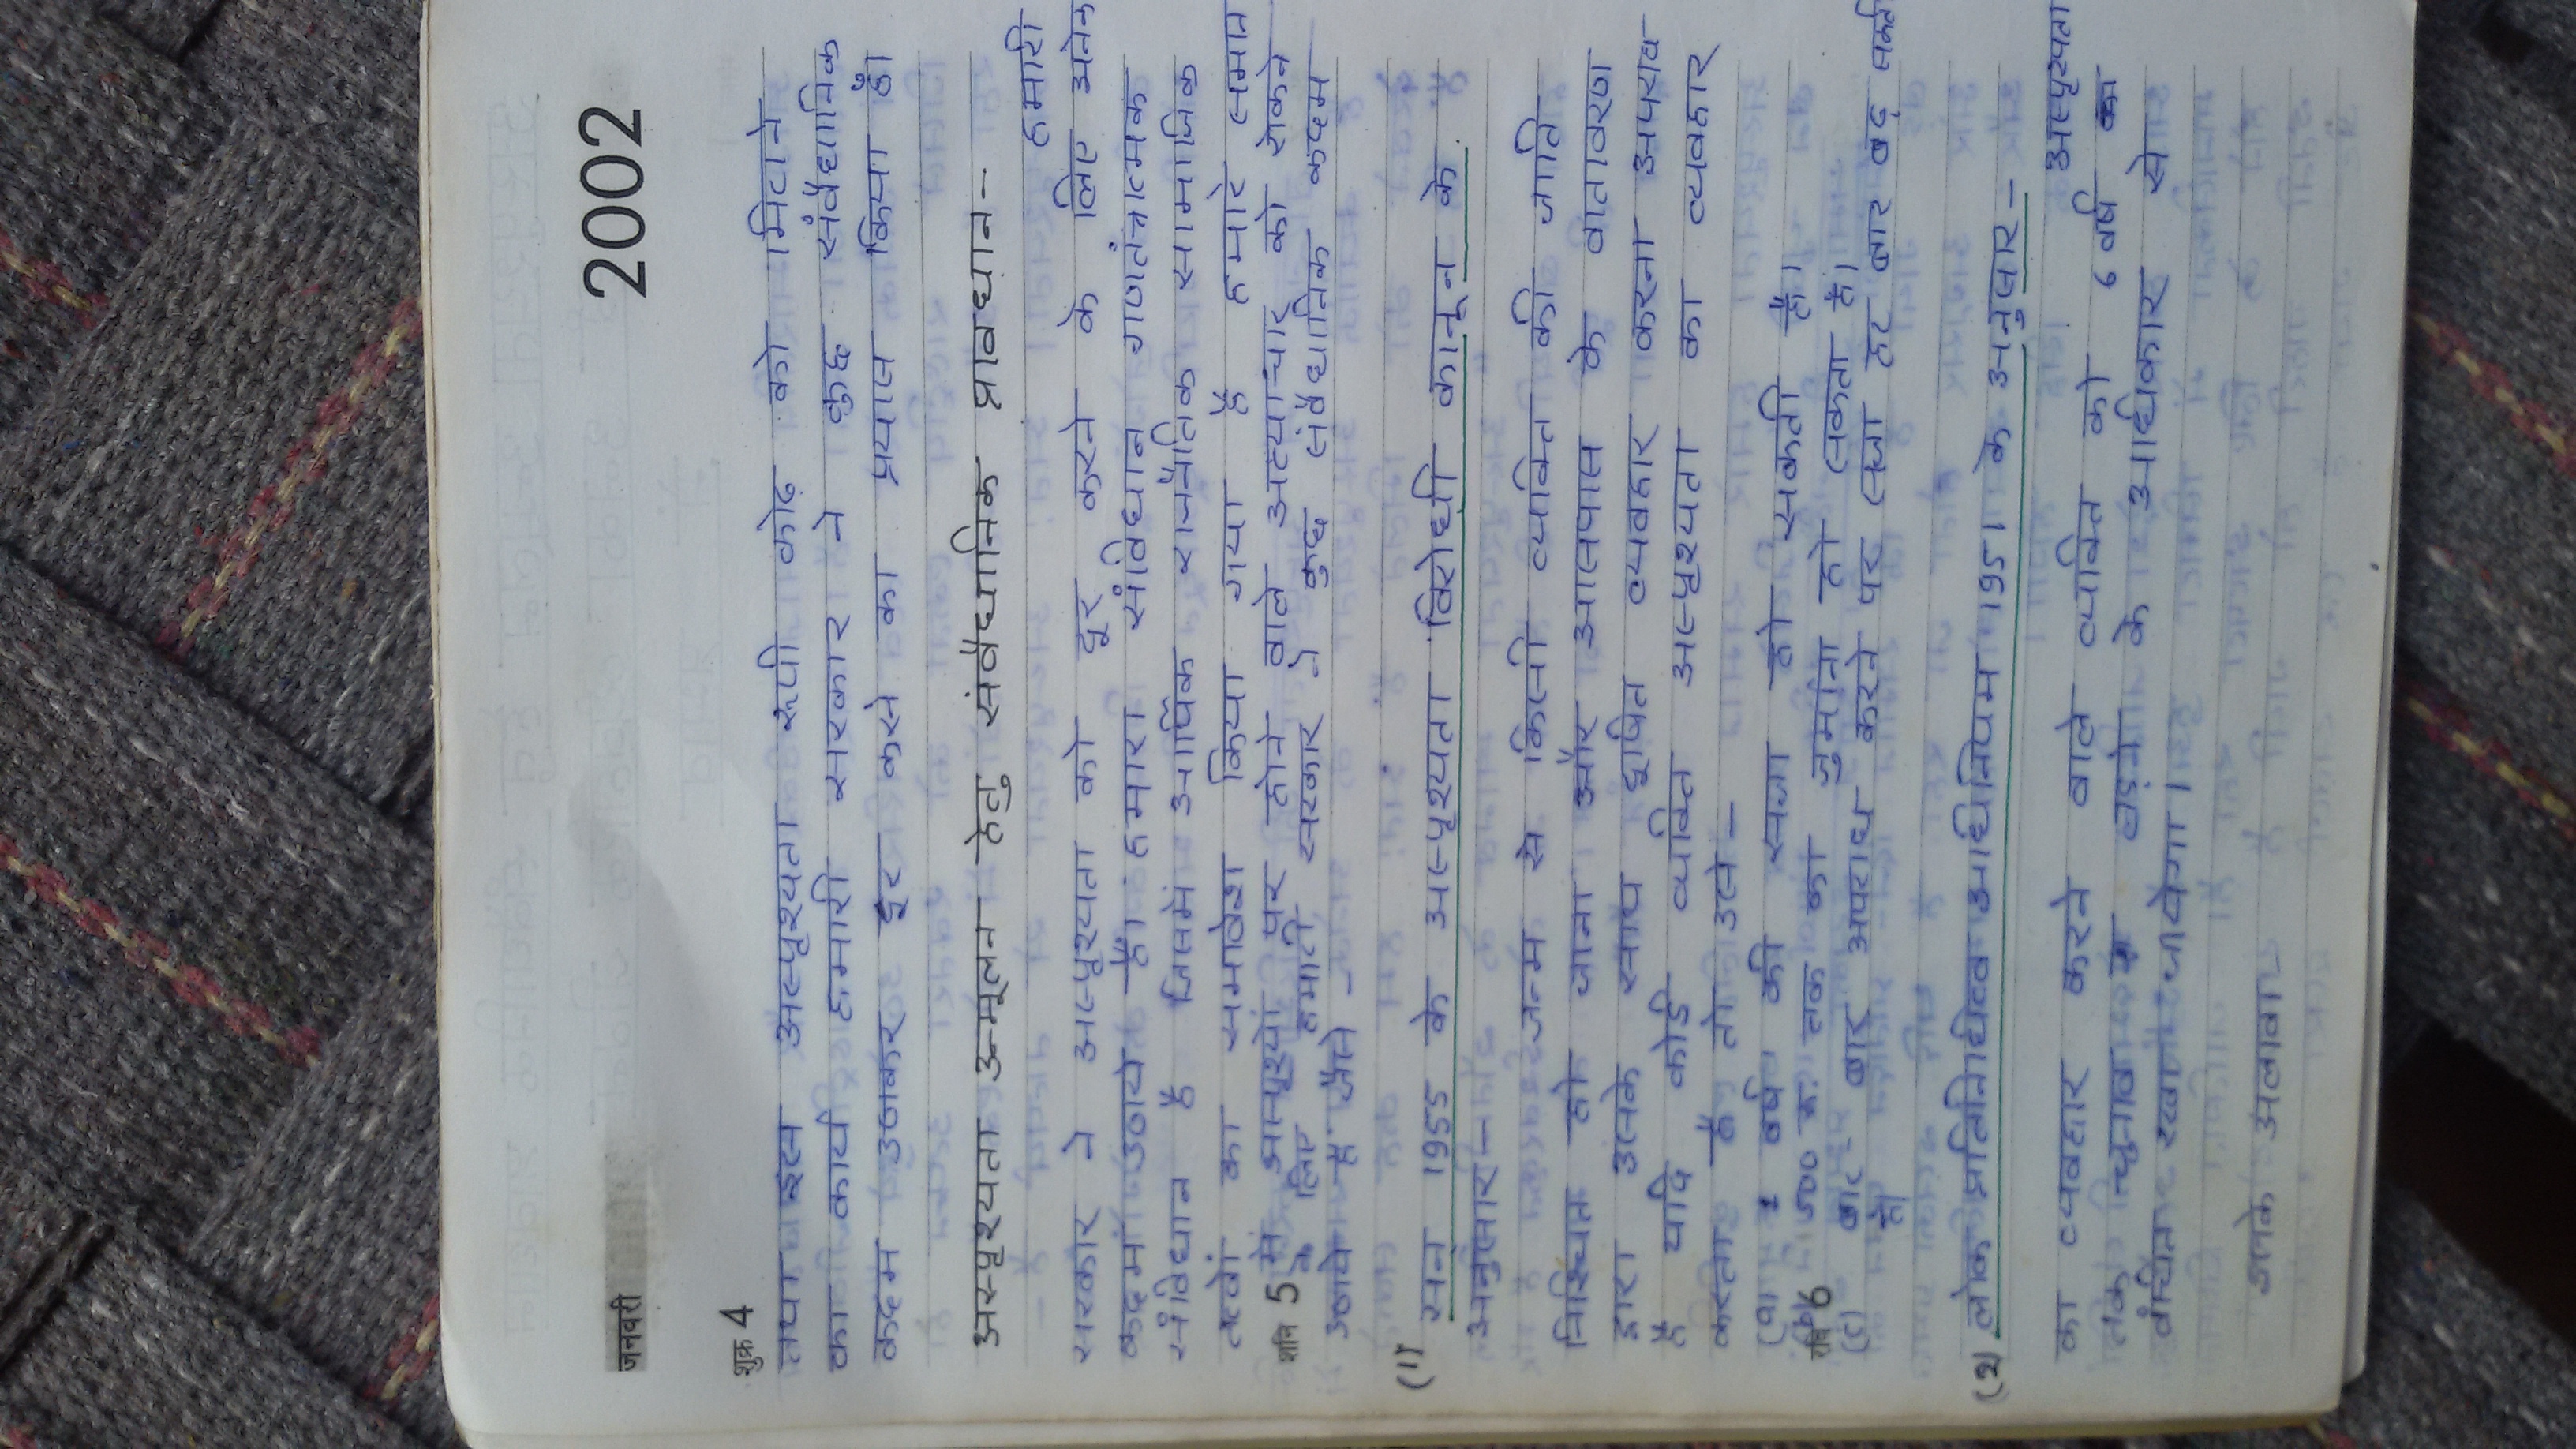 जनवरी 2002
शुक्र 4
तथा इस अस्पृश्यता रूपी कोढ को मिटाने
का कार्य हमारी सरकार ने कुछ संवैधानिक
कदम उठाकर दूर करने का प्रयास किया हैं।
अस्पृश्यता उन्मूलन हेतु संवैधानिक प्रावधान-
हमारी
सरकार ने अस्पृश्यता को दूर करने के लिए अनेक
कदम उठाये हैं। हमारा संविधान गणतंत्रात्मक
संविधान हैं जिसमें आर्थिक राजनैतिक सामाजिक
तत्वों का समावेश किया गया हैं हमारे समाज
शनि 5 में अस्पृश्यों पर होने वाले अत्याचार को रोकने
के लिए हमारी सरकार ने कुछ संवैधानिक कदम
उठाये हैं जैसे -
(1) सन 1955 के अस्पृश्यता विरोधी कानून के
अनुसार-
जन्म से किसी व्यक्ति की जाति
निश्चित हो जाना और आसपास के वातावरण
द्वारा उसके साथ दूषित व्यवहार करना अपराध
हैं यदि कोई व्यक्ति अस्पृश्यता का व्यवहार
करता हैं तो उसे -
(अ) 2 वर्ष की सजा हो सकती हैं।
रवि 6 (ब) 500 रू. तक का जुर्माना हो सकता हैं।
(स) बार बार अपराध करने पर सजा हर बार बढ़ सकती
हैं।
(2) लोक प्रतिनिधित्व अधिनियम 1951 के अनुसार -
अस्पृश्यता
का व्यवहार करने वाले व्यक्ति को 6 वर्ष का
तक चुनाव लड़ने के अधिकार से
वंचित रखा जावेगा।
उनके अलावा